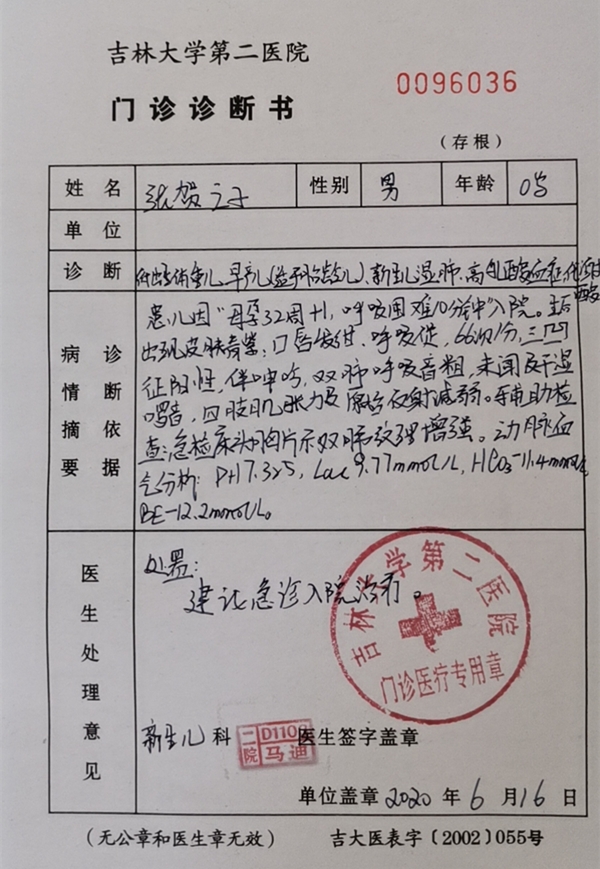 吉林大学第二医院
0096036
门诊诊断书
(存根)
姓名 张贺之子 性别 男 年龄 0岁
单位
诊断 低出生体重儿,早产儿(适于胎龄儿),新生儿湿肺,高乳酸血症,代谢性酸
病情摘要 诊断依据
患儿因“母孕32周+1,呼吸困难10分钟”入院。生后
出现皮肤青紫,口唇发绀,呼吸促,66次/分,三凹
征阳性,伴呻吟,双肺呼吸音粗,未闻及干湿
啰音,四肢肌张力及原始反射减弱。辅助检
查:急检床头胸片示双肺纹理增强。动脉血
气分析:PH7.325,Lac 9.77mmol/L,HCO3-11.4mmol/L
BE-12.2mmol/L。
医生处理意见
处置:
建议急诊入院治疗。
吉林大学第二医院
门诊医疗专用章
新生儿科 二院 D1108 马迪 医生签字盖章
单位盖章 2020年6月16日
(无公章和医生章无效) 吉大医表字〔2002〕055号